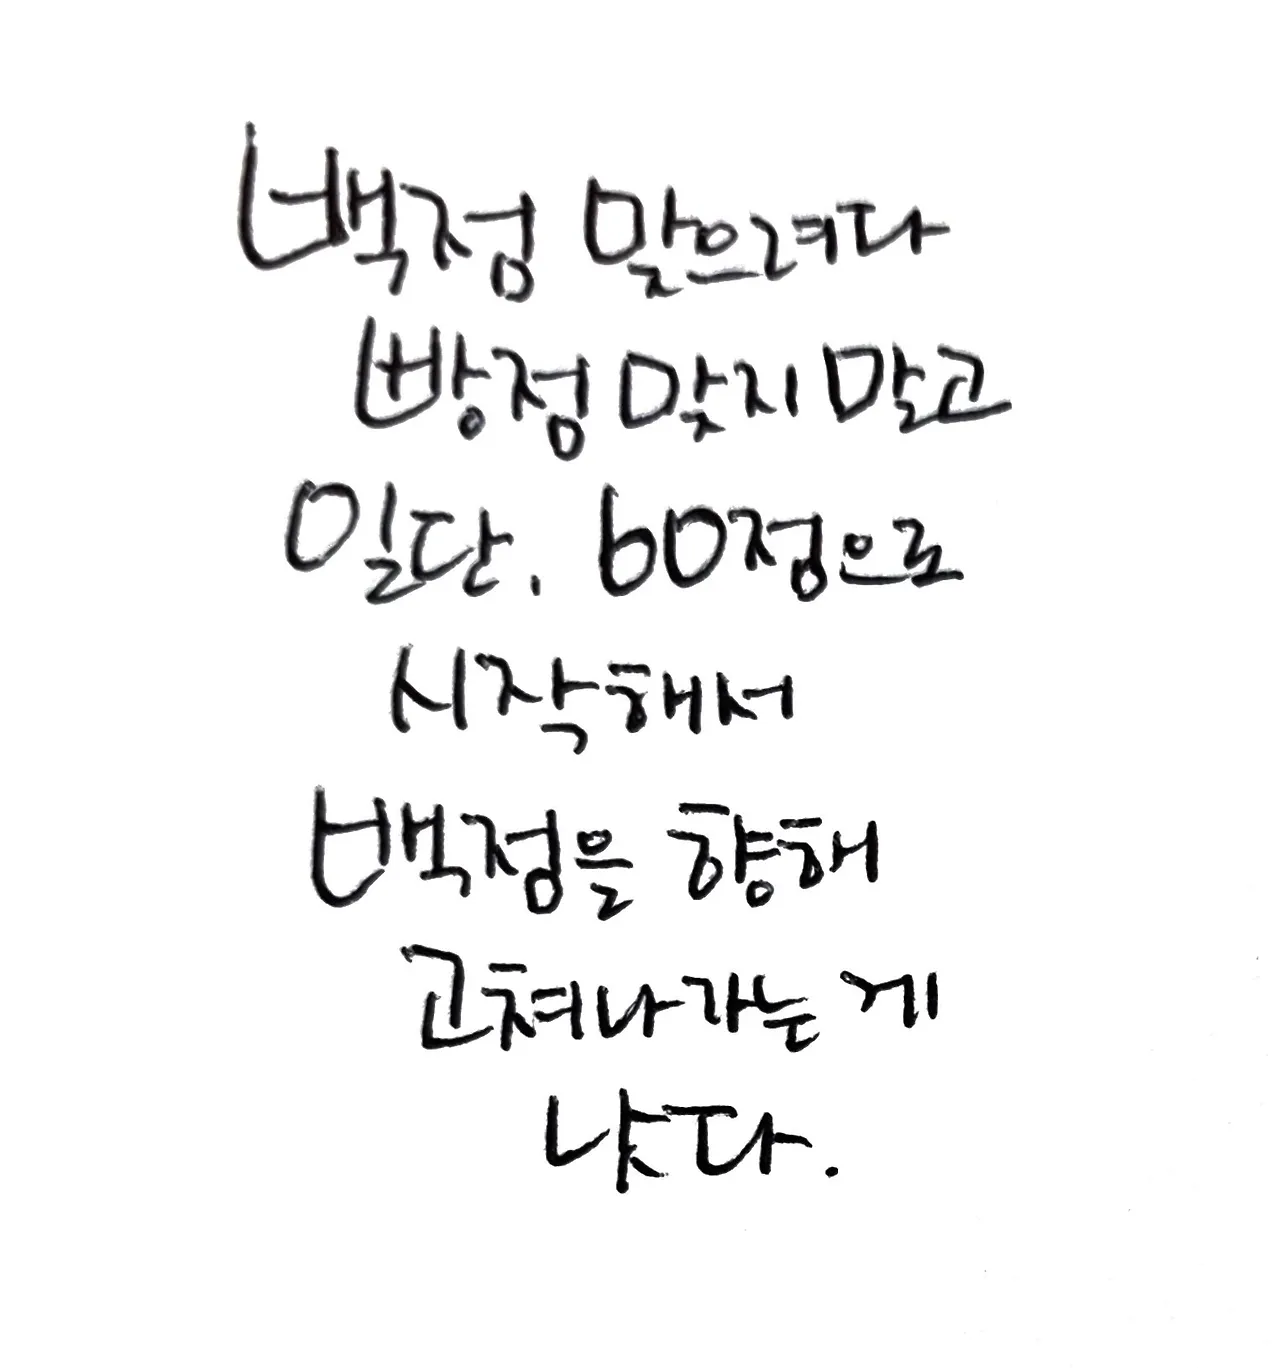 백점 맞으려다
빵점 맞지 말고
일단, 60점으로
시작해서
백점을 향해
고쳐나가는 게
낫다.